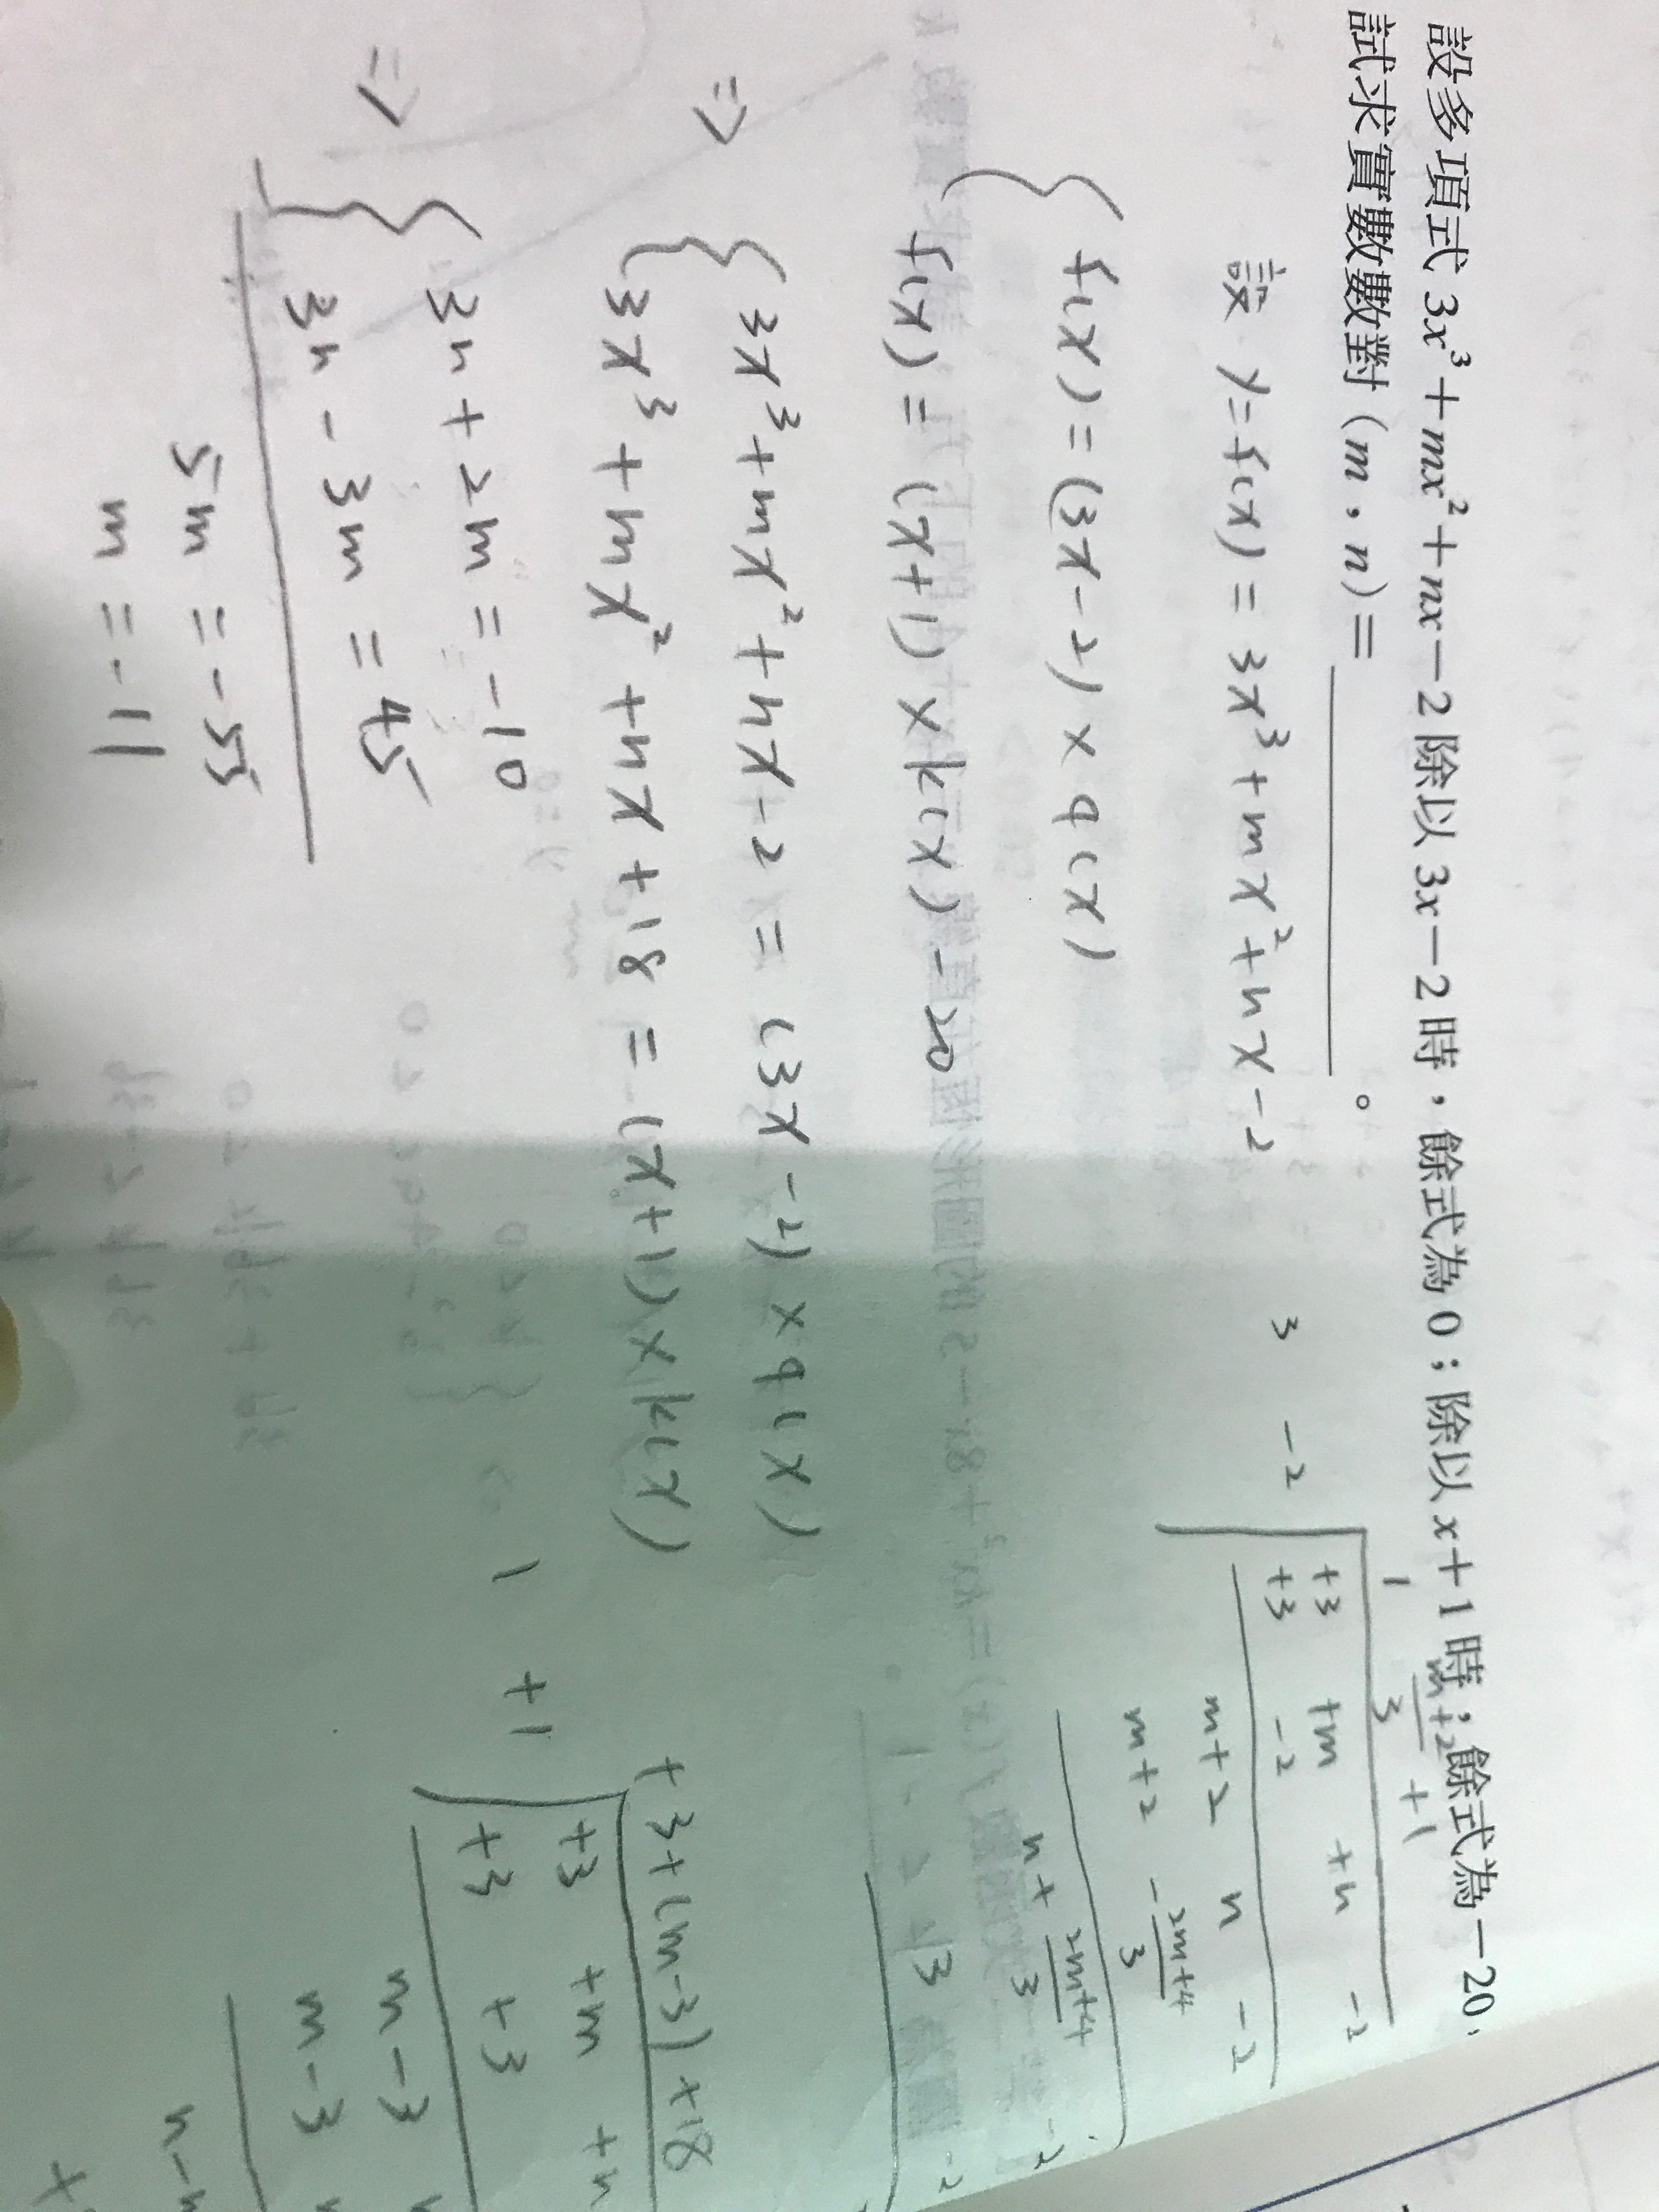 設多項式 3x³+mx²+nx－2 除以 3x－2 時，餘式為 0；除以 x+1 時，餘式為－20，
試求實數數對 (m，n)＝＿＿＿＿＿＿。
設 y=f(x) = 3x³+mx²+nx-2
{ f(x) = (3x-2) × q(x)
f(x) = (x+1) × k(x) -20
⇒ { 3x³+mx²+nx-2 = (3x-2) × q(x)
3x³+mx²+nx+18 = (x+1) × k(x)
⇒ { 3n+2m = -10
3n-3m = 45
5m = -55
m = -11
1 m+2/3 +1
3 -2 +3 +m +n -2
+3 -2
m+2 n -2
m+2 -2m+4/3
n+ 2m+4/3 -2
+3+(m-3)+18
1 +1 +3 +m +n
+3 +3
m-3
m-3